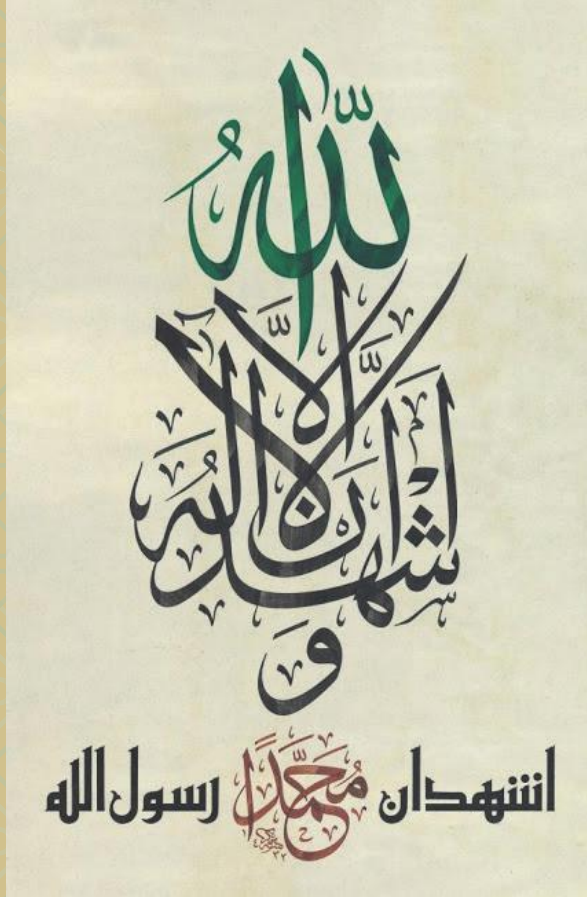 اشهد ان لا اله الا الله
و
اشهد ان محمدًا رسول الله